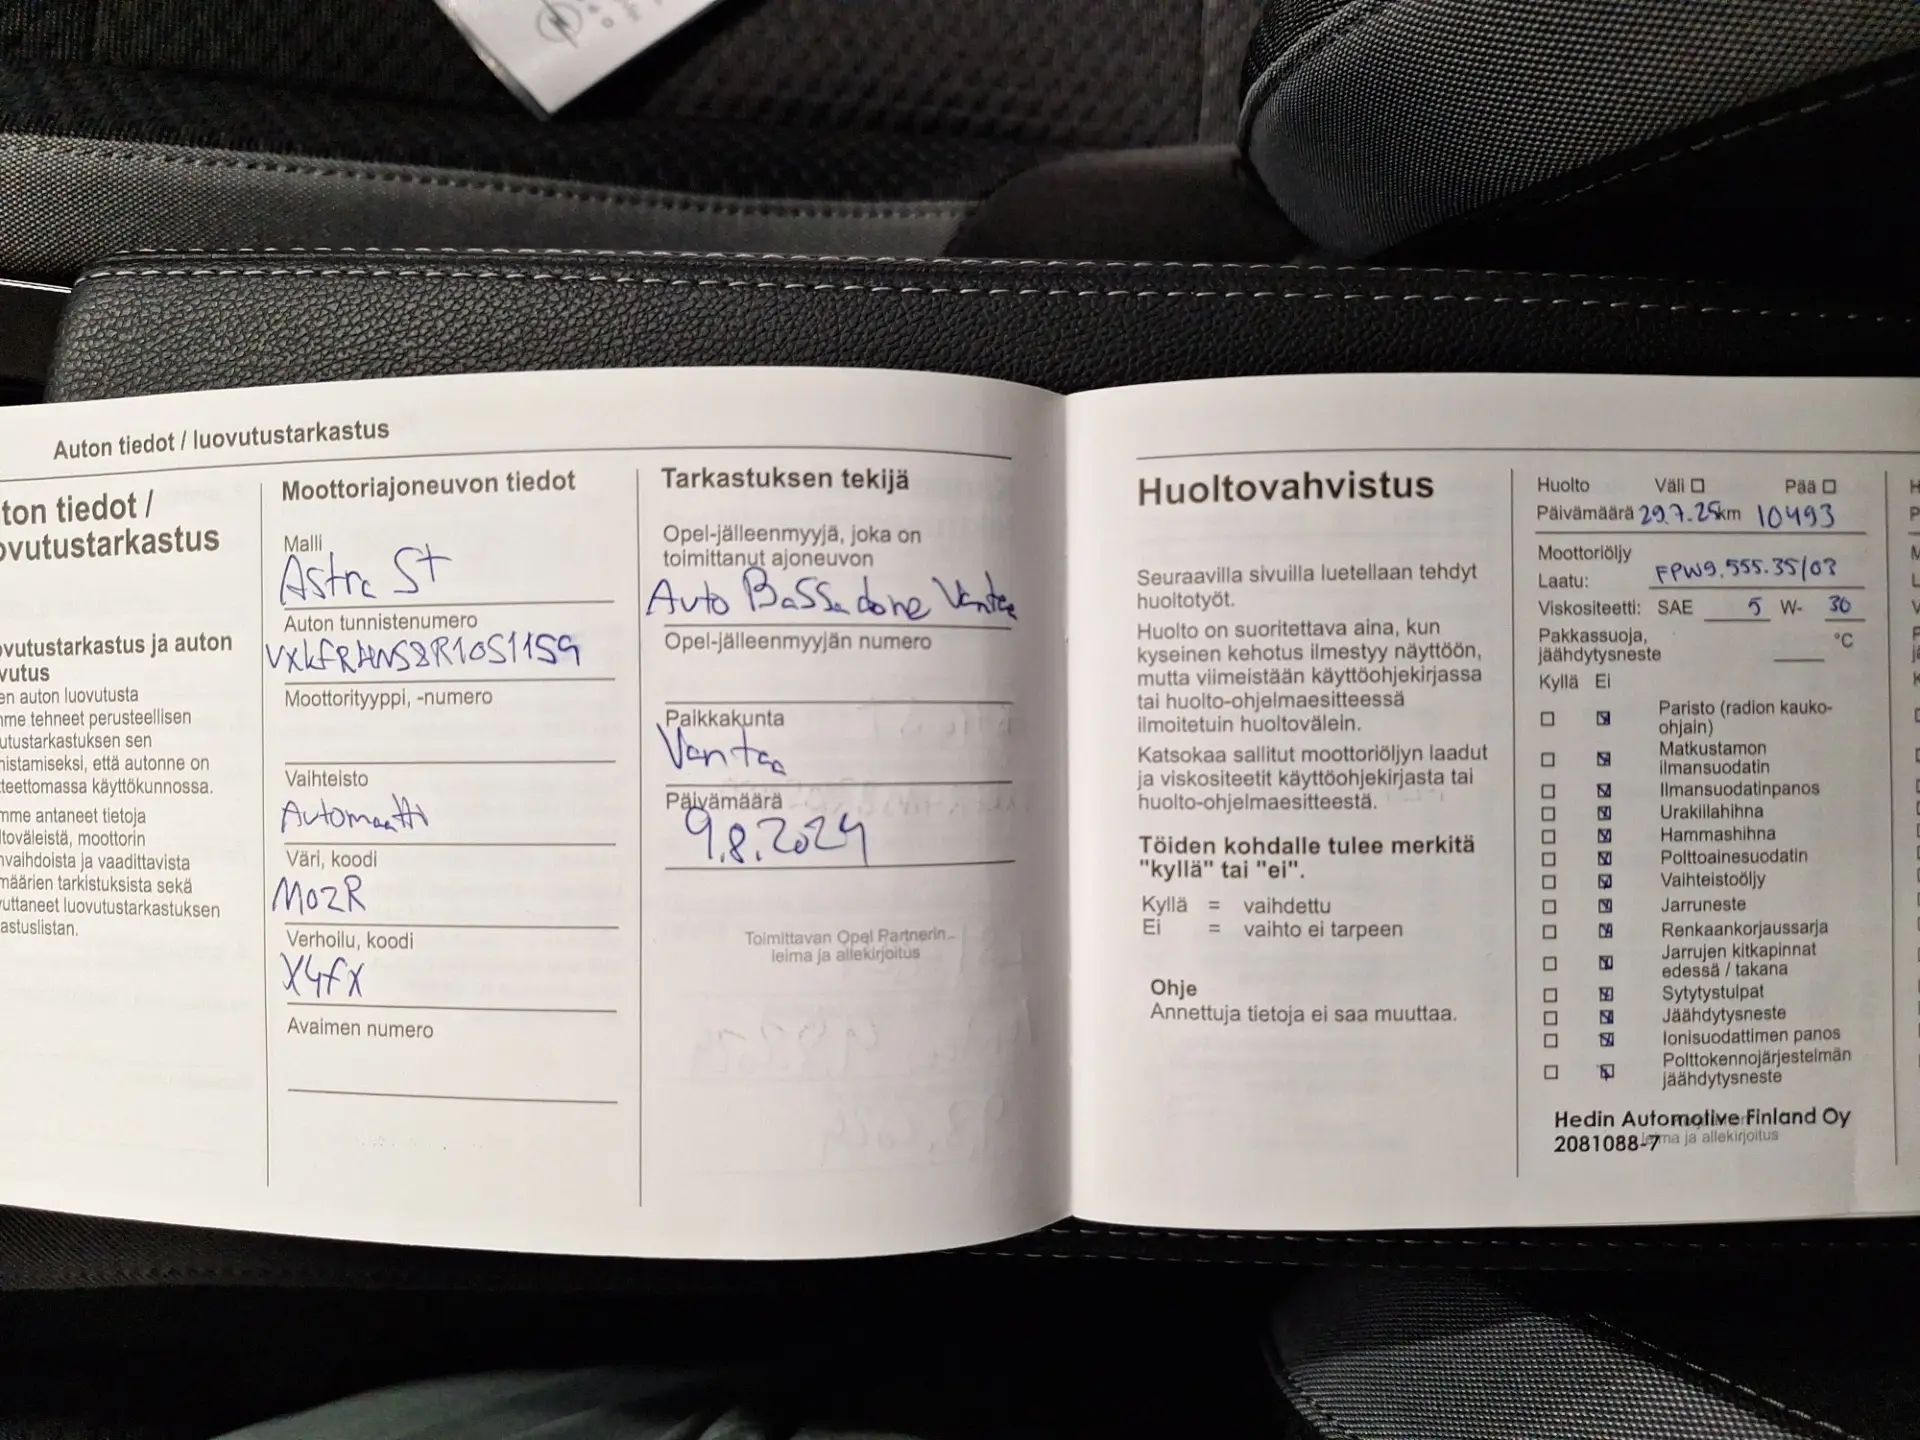 Auton tiedot / luovutustarkastus
ton tiedot /
ovutustarkastus
ovutustarkastus ja auton
vutus
en auton luovutusta
mme tehneet perusteellisen
utustarkastuksen sen
mistamiseksi, että autonne on
tteettomassa käyttökunnossa.
mme antaneet tietoja
toväleistä, moottorin
nvaihdoista ja vaadittavista
määrien tarkistuksista sekä
vuttaneet luovutustarkastuksen
astuslistan.
Moottoriajoneuvon tiedot
Malli
Astra St
Auton tunnistenumero
VXKFRHNS8R1051159
Moottorityyppi, -numero
Vaihteisto
Automaatti
Väri, koodi
M0ZR
Verhoilu, koodi
X4FX
Avaimen numero
Tarkastuksen tekijä
Opel-jälleenmyyjä, joka on
toimittanut ajoneuvon
Auto Bassadone Vantaa
Opel-jälleenmyyjän numero
Paikkakunta
Vantaa
Päivämäärä
9.8.2024
Toimittavan Opel Partnerin
leima ja allekirjoitus
Huoltovahvistus
Seuraavilla sivuilla luetellaan tehdyt
huoltotyöt.
Huolto on suoritettava aina, kun
kyseinen kehotus ilmestyy näyttöön,
mutta viimeistään käyttöohjekirjassa
tai huolto-ohjelmaesitteessä
ilmoitetuin huoltovälein.
Katsokaa sallitut moottoriöljyn laadut
ja viskositeetit käyttöohjekirjasta tai
huolto-ohjelmaesitteestä.
Töiden kohdalle tulee merkitä
"kyllä" tai "ei".
Kyllä = vaihdettu
Ei = vaihto ei tarpeen
Ohje
Annettuja tietoja ei saa muuttaa.
Huolto Väli Pää
Päivämäärä 29.7.25 km 10493
Moottoriöljy
Laatu: FPW9.555.35/03
Viskositeetti: SAE 5 W- 30
Pakkassuoja, °C
jäähdytysneste
Kyllä Ei
Paristo (radion kauko-
ohjain)
Matkustamon
ilmansuodatin
Ilmansuodatinpanos
Urakiilahihna
Hammashihna
Polttoainesuodatin
Vaihteistoöljy
Jarruneste
Renkaankorjaussarja
Jarrujen kitkapinnat
edessä / takana
Sytytystulpat
Jäähdytysneste
Ionisuodattimen panos
Polttokennojärjestelmän
jäähdytysneste
Hedin Automotive Finland Oy
2081088-7
leima ja allekirjoitus